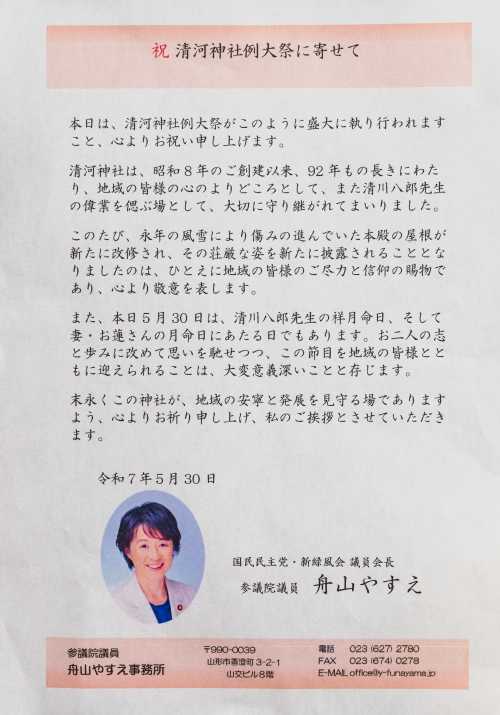 祝 清河神社例大祭に寄せて
本日は、清河神社例大祭がこのように盛大に執り行われます
こと、心よりお祝い申し上げます。
清河神社は、昭和８年のご創建以来、92 年もの長きにわた
り、地域の皆様の心のよりどころとして、また清川八郎先生
の偉業を偲ぶ場として、大切に守り継がれてまいりました。
このたび、永年の風雪により傷みの進んでいた本殿の屋根が
新たに改修され、その荘厳な姿を新たに披露されることとな
りましたのは、ひとえに地域の皆様のご尽力と信仰の賜物で
あり、心より敬意を表します。
また、本日５月 30 日は、清川八郎先生の祥月命日、そして
妻・お蓮さんの月命日にあたる日でもあります。お二人の志
と歩みに改めて思いを馳せつつ、この節目を地域の皆様とと
もに迎えられることは、大変意義深いことと存じます。
末永くこの神社が、地域の安寧と発展を見守る場であります
よう、心よりお祈り申し上げ、私のご挨拶とさせていただき
ます。
令和７年５月 30 日
国民民主党・新緑風会 議員会長
参議院議員 舟山やすえ
参議院議員
舟山やすえ事務所
〒990-0039
山形市香澄町 3-2-1
山交ビル８階
電話 023 (627) 2780
FAX 023 (674) 0278
E-MAIL office@y-funayama.jp